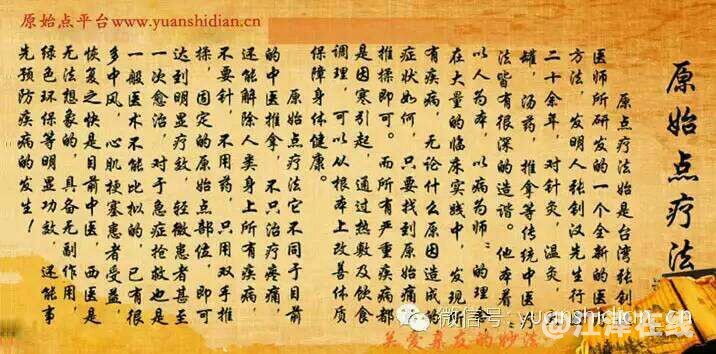 原始点平台www.yuanshidian.cn
原始点疗法
原点疗法始是台湾张钊
医师所研发的一个全新的医
方法,发明人张钊汉先生行
二十余年,对针灸,温灸,
罐,汤药,推拿等传统中医疗
法皆有很深的造诣。他本着“
以人为本,以病为师”的理念
在大量的临床实践中,发现
有疾病,无论什么原因造成的
症状如何,只要找到原始痛点
推揉即可。而所有严重疾病都
是因寒引起,通过热敷及饮食
调理,可以从根本上改善体质
保障身体健康。
原始点疗法它不同于目前
的中医推拿,不只治疗疼痛,
还能解除人类身上所有疾病,
不要针,不用药,只用双手推
揉,固定的原始点部位,即可
达到明显疗效,轻微患者甚至
一次愈治,对于急症抢救也是
一般医术不能比拟的,已有很
多中风,心肌梗塞患者受益,
恢复之快是目前中医,西医是
无法想象的,具备无副作用,
绿色环保等明显功效,还能事
先预防疾病的发生!
微信号:yuanshidian_cn
关爱亲友的妙法
@江泽在线